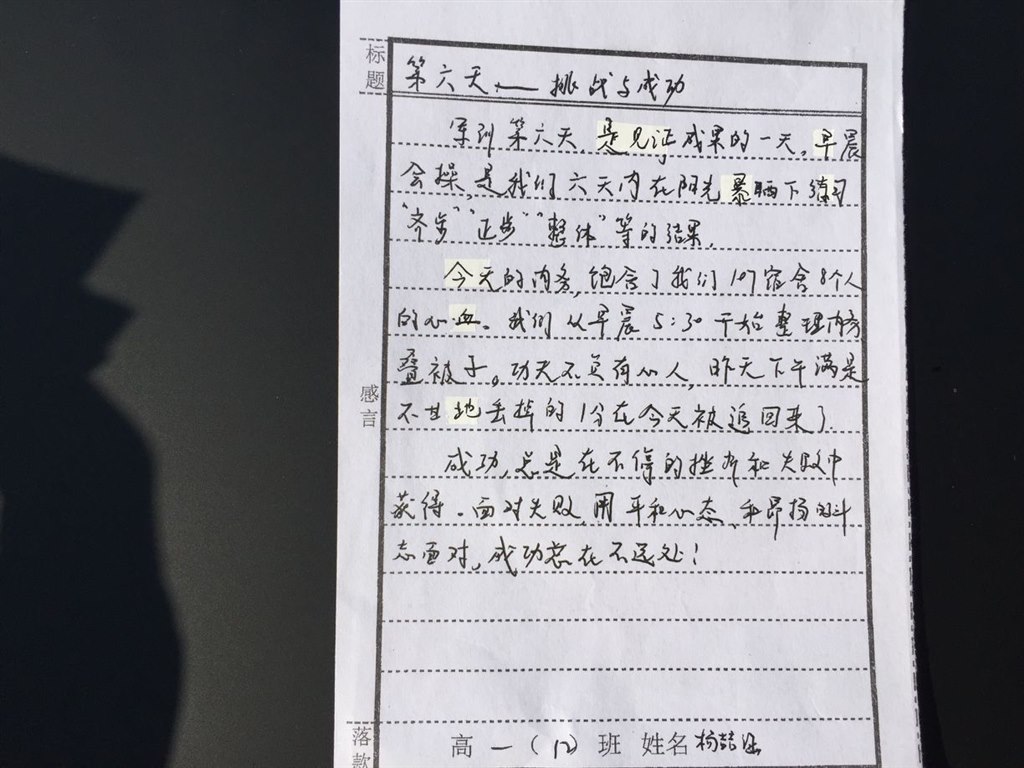 标题
第六天——挑战与成功
军训第六天,是见证成果的一天,早晨
会操,是我们六天内在阳光暴晒下练习
“齐步”“正步”“整体”等的结果。
今天的内务,饱含了我们107宿舍8个人
的心血。我们从早晨5:30开始整理内务
叠被子。功夫不负有心人,昨天下午满是
不甘地丢掉的1分在今天被追回来了。
感言
成功,总是在不停的挫折和失败中
获得。面对失败,用平和心态、和昂扬的斗
志面对,成功总在不远处!
落款
高一(12)班 姓名 杨喆